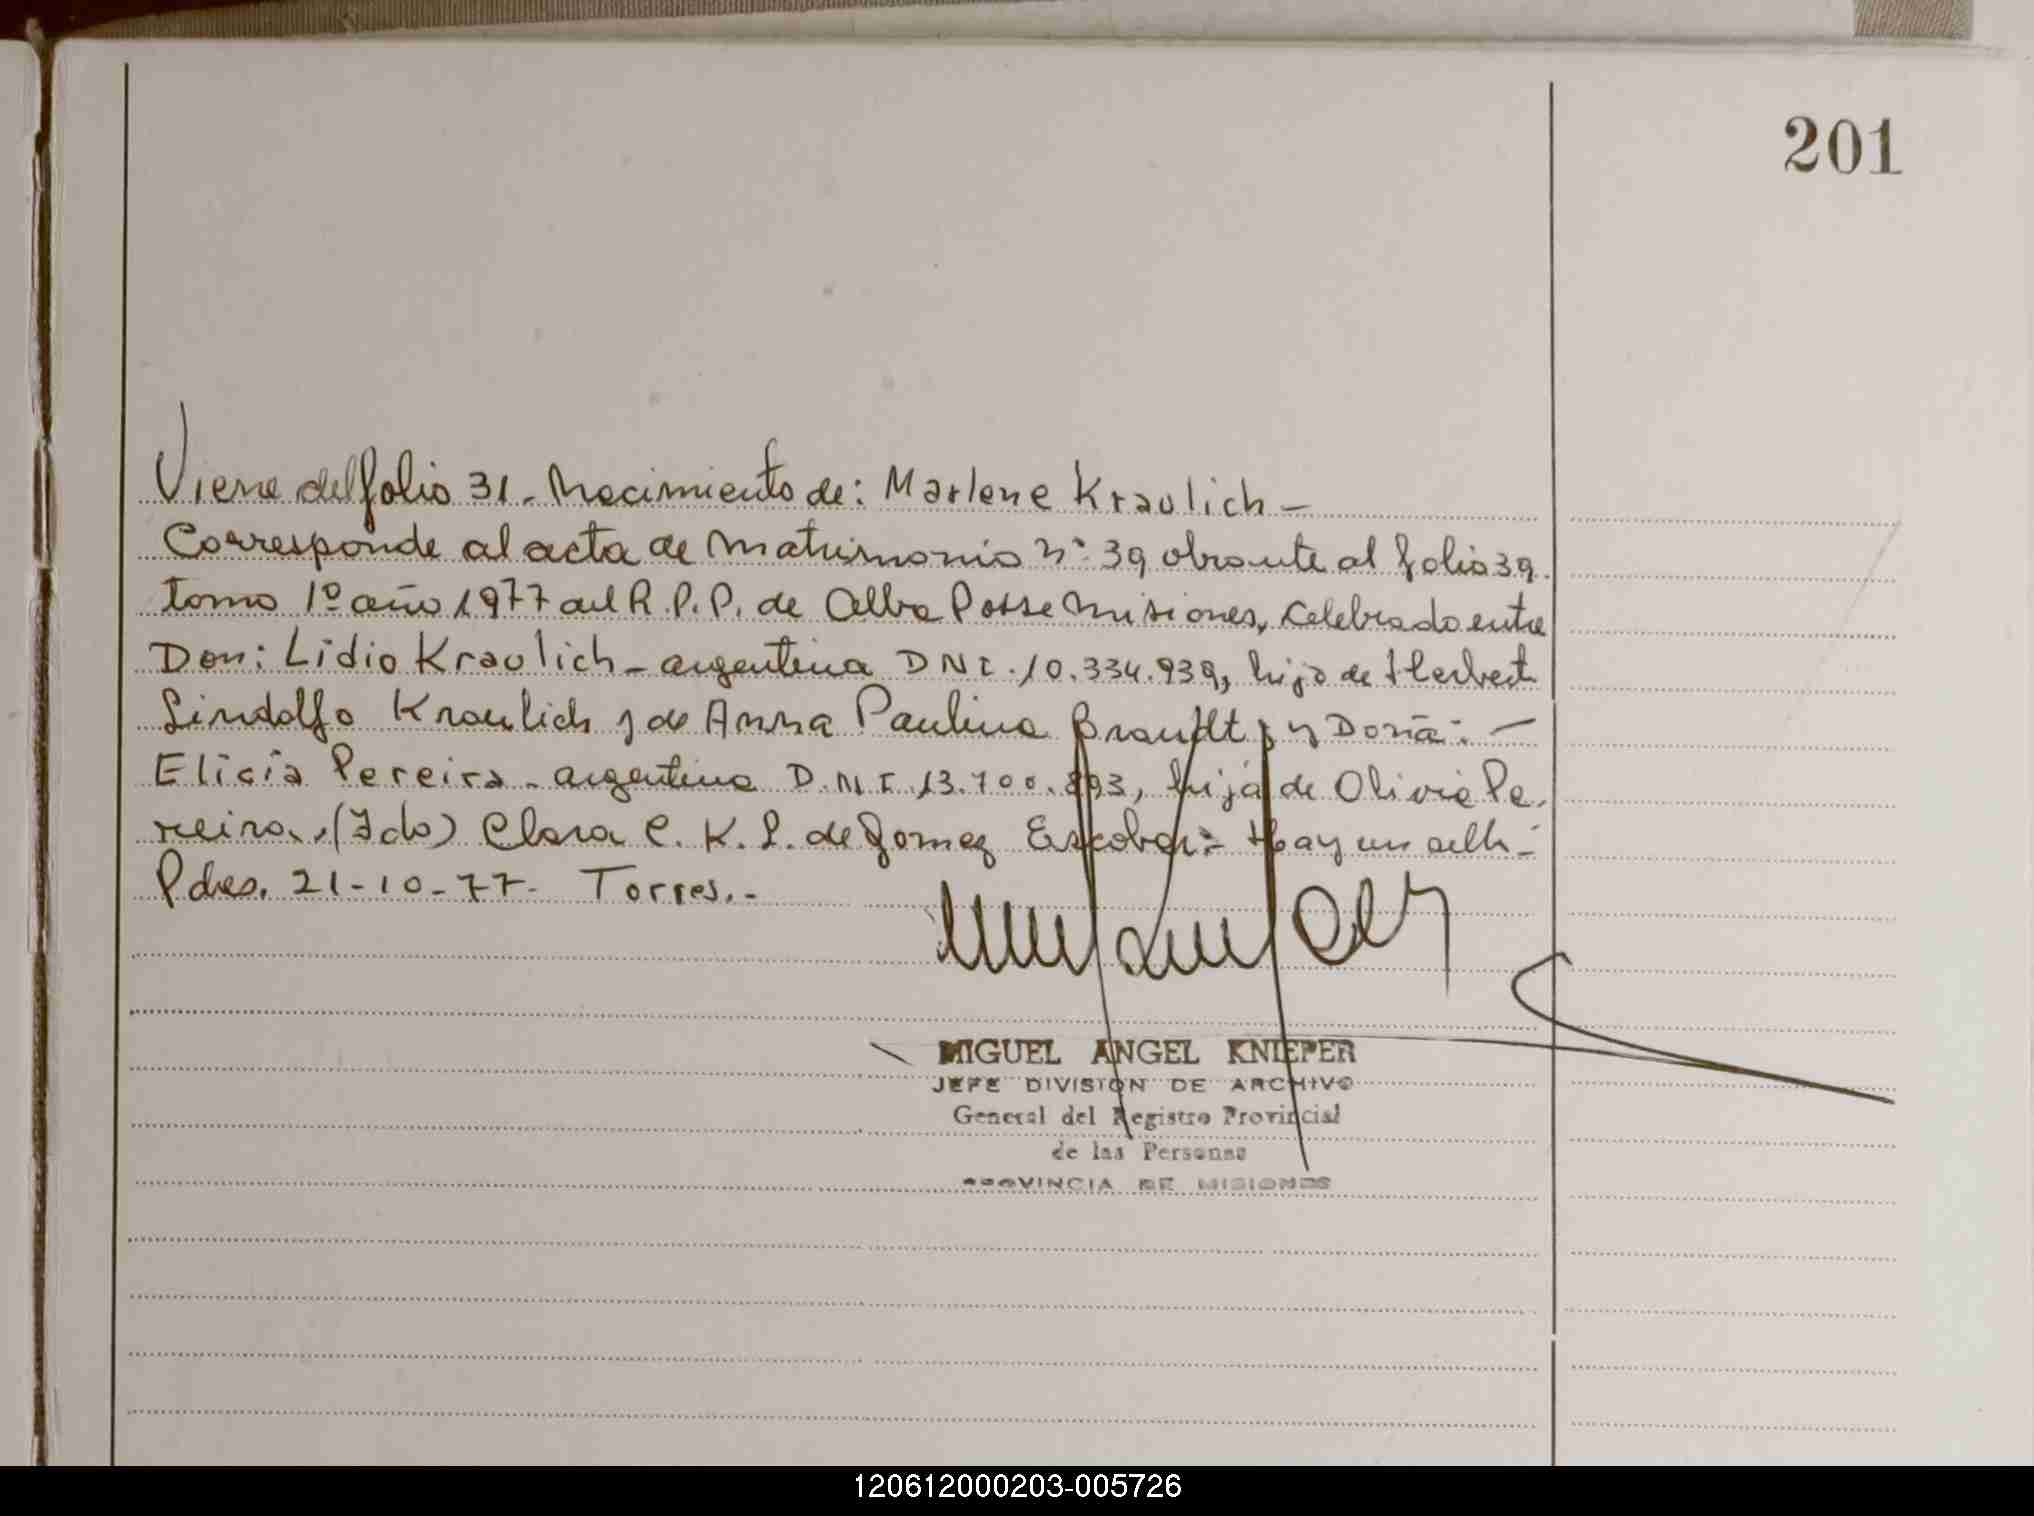 201
Viene del folio 31. Nacimiento de: Marlene Kraulich –
Corresponde al acta de matrimonio nº 39 obrante al folio 39.
tomo 1º año 1977 del R.P.P. de Alba Posse Misiones, celebrado entre
Don: Lidio Kraulich – argentina DNI. 10.334.939, hijo de Herbert
Lindolfo Kraulich y de Anna Paulina Brandt y Doña: –
Elicia Pereira – argentina D.N.I. 13.700.893, hija de Olivia Pe.
reira., (Fdo) Clara C. K. L. de Gomez Escobar:- Hay un sello -
Pdas. 21-10-77- Torres.-
MIGUEL ANGEL KNIEPER
JEFE DIVISION DE ARCHIVO
General del Registro Provincial
de las Personas
PROVINCIA DE MISIONES
120612000203-005726